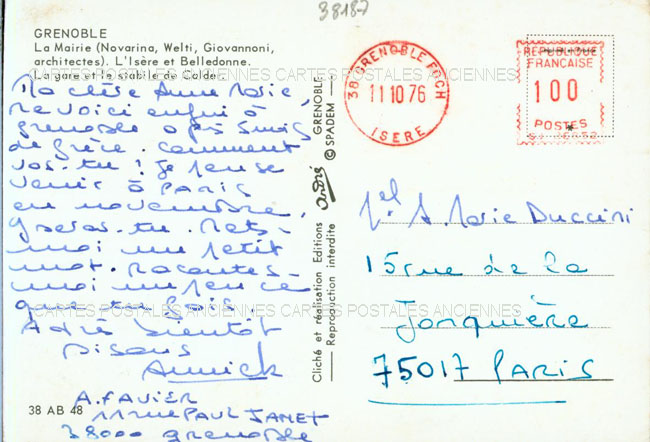 38187
GRENOBLE
La Mairie (Novarina, Welti, Giovannoni,
architectes). L'Isère et Belledonne.
La gare et le stabile de Calder.
CARTES POSTALES ANCIENNES CARTES POSTALES ANCIENNES
Ma chère Anne Marie,
me voici enfin à
grenoble après 5 mois
de grèce. comment
vas-tu ? Je pense
venir à PARIS
en novembre,
y seras-tu. Mets-
moi un petit
mot. Racontes-
moi un peu ce
que tu fais.
CARTES POSTALES ANCIENNES CARTES POSTALES ANCIENNES
A très bientôt
bisous
Annick
A. FAVIER
11 rue PAUL JANET
38000 grenoble
38 AB 48
Cliché et réalisation Editions André GRENOBLE
Reproduction interdite © SPADEM
38 GRENOBLE FOCH
11 10 76
ISERE
REPUBLIQUE
FRANÇAISE
100
POSTES
Mel. A. Marie Duccini
15 rue de la
Jonquière
75017 PARIS